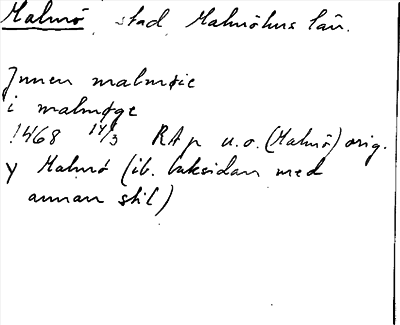 Malmö, stad, Malmöhus län.
Jnnen malmøie
i malmøge
1468 14/3 RAp u.o. (Malmö) orig.
y Malmö (ib. baksidan med
annan stil)